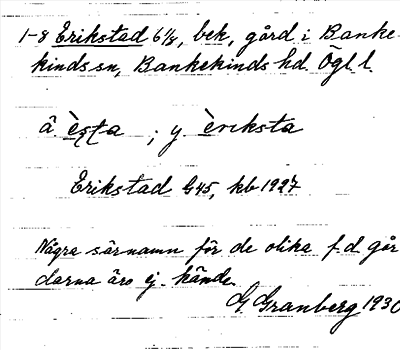 1-8 Erikstad 6 1/8, bek, gård i Banke-
kinds sn, Bankekinds hd. Ögl l.
å ; y. èriksta
Erikstad G45, kb 1927
Några särnamn för de olika f.d. går
darna äro ej kända.
G. Granberg 1930